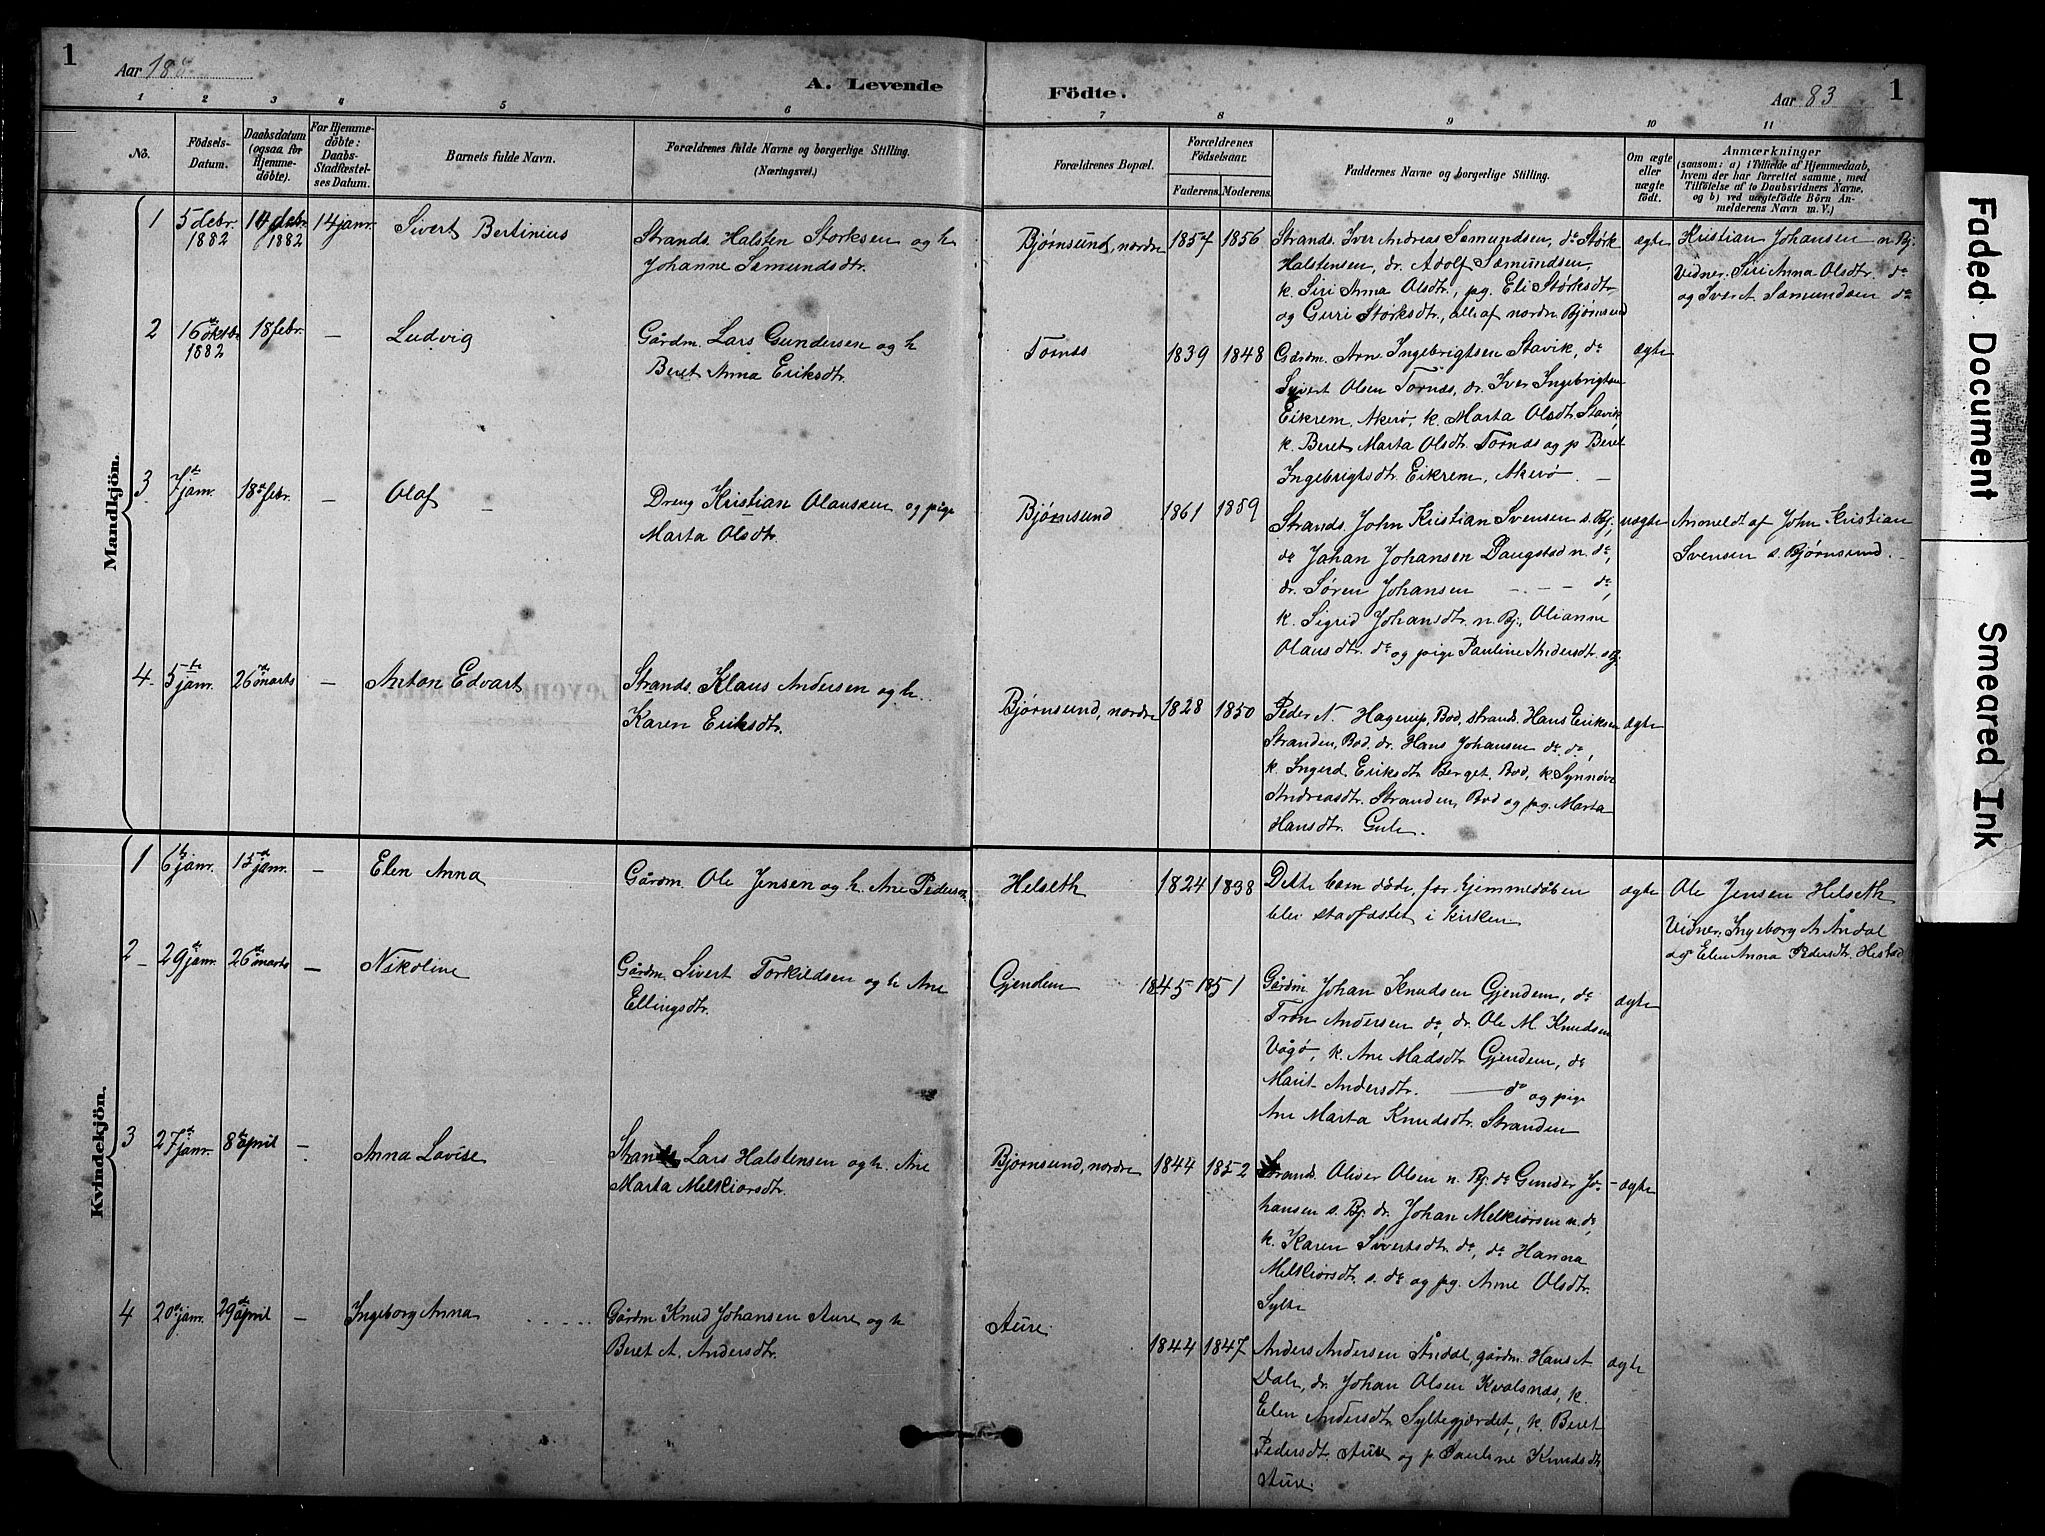 1
Aar 188
A. Levende
Födte.
Aar 83
1
1 2 3 4 5 6 7 8 9 10 11
Nö.
Födsels-
Datum.
Daabsdatum
(ogsaa for
Hjemme-
döbte).
For Hjemme-
döbte:
Daabs-
Stadfæstel-
ses Datum.
Barnets fulde Navn.
Forældrenes fulde Navne og borgerlige Stilling.
(Næringsvei.)
Forældrenes Bopæl.
Forældrenes
Födselsaar.
Faderens. Moderens.
Faddernes Navne og borgerlige Stilling.
Om ægte
eller
uægte
födt.
Anmærkninger
(saasom: a) i Tilfælde af Hjemmedaab,
hvem der har forrettet samme, med
Tilföielse af to Daabsvidners Navne,
og b) ved uægtefödte Börn An-
melderens Navn m. V.)
Mandkjön.
1 5 debr. 14 debr. 14 janr. Sivert Bertinius
1882 1882
Strands. Halsten Størksen og h.
Johanne Samundsdtr.
Bjørnsund, nordre 1854 1856
Strands. Iver Andreas Samundsen, do Størk
Halstensen, dr. Adolf Samundsen,
k. Siri Anna Olsdtr., pg. Eli Størksdtr
og Guri Størksdtr., alle af nordr. Bjørnsund
ægte
Kristian Johansen n. Bj.
Vidner. Siri Anna Olsdtr. do
og Iver A. Samundsen do
2 16 oktbr. 18 febr. — Ludvig
1882
Gårdm. Lars Gundersen og h
Beret Anna Eriksdtr.
Tornæs 1839 1848
Gårdm. Arne Ingebrigtsen Stavik, do
Sivert Olsen Tornæs, dr. Iver Ingebrigtsen
Eikrem, Akerø, k. Marta Olsdtr. Stavik,
k. Beret Marta Olsdtr. Tornæs og p Beret
Ingebrigtsdtr. Eikrem, Akerø. —
ægte
3 7de janr. 18de febr. — Olaf
Dreng Kristian Olaussen og pige
Marta Olsdtr.
Bjørnsund 1861 1859
Strands. John Kristian Svensen s. Bj,
do Johan Johansen Daugstad n. do,
dr. Søren Johansen — . — — do,
k. Sigrid Johansdtr. n. Bj., Olianne
Olausdtr. do og pige Pauline Andersdtr. s Bj.
uægte
Anmeldt af John Kristian
Svensen s. Bjørnsund. —
4 5te janr. 26de marts — Anton Edvart
Strands. Klaus Andersen og h.
Karen Eriksdtr.
Bjørnsund, nordre 1828 1850
Peder N. Hagerup, Bod, strands. Hans Eriksen
Stranden, Bod, dr. Hans Johansen do do,
k. Ingerd Eriksdtr. Berget, Bod, k. Synnøve
Andreasdtr. Stranden, Bod og pg. Marta
Hansdtr. Gule.
ægte
Kvindekjön.
1 6te janr. 15de janr. — Elen Anna
Gårdm. Ole Jensen og h. Ane Pedersdtr
Helseth 1824 1838
Dette barn døde, før hjemmedåben
blev stadfæstet i kirken.
ægte
Ole Jensen Helseth
Vidner: Ingeborg A. Åndal
og Elen Anna Pedersdtr. Hestad
2 29de janr. 26de marts — Nikoline
Gårdm. Sivert Torkildsen og h. Ane
Ellingsdtr.
Gjendem 1845 1851
Gårdm. Johan Knudsen Gjendem, do
Tron Andersen do, dr. Ole M. Knudsen
Vågø, k. Ane Madsdtr. Gjendem, do
Marit Andersdtr. — do og pige
Ane Marta Knudsdtr. Stranden
ægte
3 27de janr. 8de april — Anna Lovise
Strands. Lars Halstensen og h. Ane
Marta Melkiorsdtr.
Bjørnsund, nordre 1844 1852
Strands. Oliver Olsen n. Bj. do Gunder Jo-
hansen s. Bj. dr. Johan Melkiorsen n. do,
k. Karen Sivertsdtr. do, do Hanna
Melkiorsdtr. s. do og pg. Anne Olsdtr.
Sylte
ægte
4 20de janr. 29de april — Ingeborg Anna
Gårdm. Knud Johansen Aure og h
Beret A. Andersdtr.
Aure. 1844 1847
Anders Andersen Åndal, gårdm. Hans A
Dale, dr. Johan Olsen Kvalsnæs, k.
Elen Andersdtr. Syltegjærdet, k. Beret
Pedersdtr. Aure og p. Pauline Knudsdtr.
Aure.
ægte
Faded Document
Smeared Ink